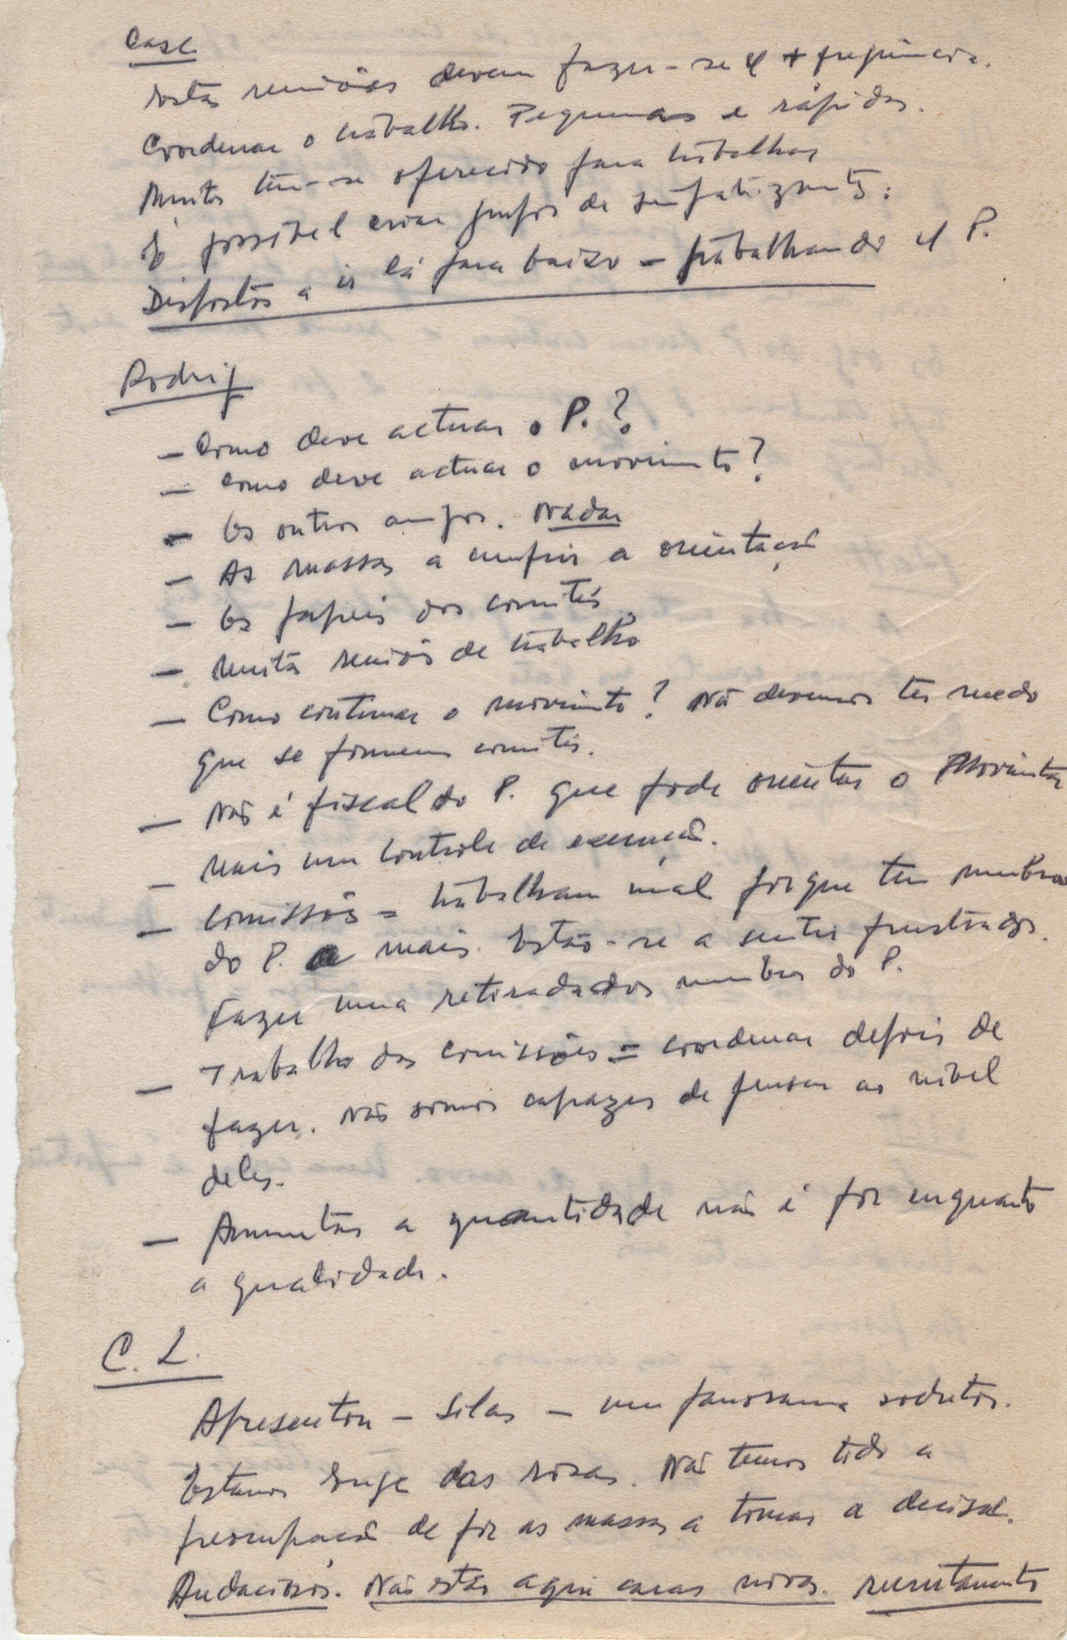 Case
Estas reuniões devem fazer-se c/ + frequência.
Coordenar o trabalho. Pequenas e rápidas.
Muitos têm-se oferecido para trabalhar
É possível criar grupos de simpatizantes.
Dispostos a ir lá para baixo - trabalhando c/ P.
Rodrig
- Como deve actuar o P.?
- Como deve actuar o movimento?
- Os outros amigos. Nadar
- As massas a cumprir a orientação
- Os papeis dos comités
- Muitas reuniões de trabalho
- Como continuar o movimento? Não devemos ter medo
que se formem comités.
- Não é fiscal do P. que pode orientar o Movimento
- Mais um controle de execução.
- Comissões = trabalham mal porque têm membros
do P. a mais. Estão-se a sentir frustrados.
Fazer uma retirada dos membros do P.
- Trabalho das comissões = coordenar depois de
fazer. Não somos capazes de pensar ao nível
deles.
- Aumentar a quantidade não é por enquanto
a qualidade.
C. L.
Apresentou - Silas - um panorama
Estamos longe das rosas. Não temos tido a
preocupação de pôr as massas a tomar a decisão.
Audaciosos. Não estão aqui caras novas. recrutamento